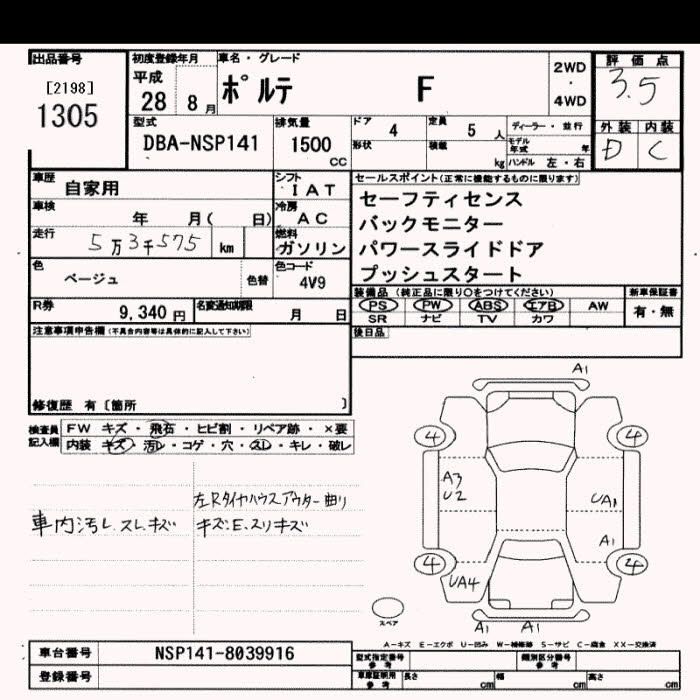 出品番号
[2198]
1305
初度登録年月
平成
28 8月
車名・グレード
ポルテ F
2WD
・
4WD
評価点
3.5
外装 内装
D C
型式
DBA-NSP141
排気量
1500
CC
ドア 4
定員 5人
形状
積載 kg
ディーラー・並行
モデル年式 年
ハンドル 左・右
車歴 自家用
シフト IAT
車検 年 月( 日)
冷房 AC
走行 5万3千575 km
燃料 ガソリン
色 ベージュ
色替
色コード 4V9
R券 9,340円
名変通知期限 月 日
セールスポイント(正常に機能するものに限ります)
セーフティセンス
バックモニター
パワースライドドア
プッシュスタート
装備品(純正品に限り○をつけてください)
新車保証書
PS PW ABS エアB AW
SR ナビ TV カワ
有・無
後日品
注意事項申告欄(不具合内容等は具体的に記入して下さい)
修復歴 有〔箇所 〕
検査員記入欄
FW キズ・飛石・ヒビ割・リペア跡・×要
内装 キズ・汚レ・コゲ・穴・スレ・キレ・破レ
左Rタイヤハウスアウター曲り
車内汚レ.スレ.キズ
キズ.E.スリキズ
A1
4
4
A3
U2
UA1
A1
4
4
UA4
スペア
A1
A1
A-キズ E-エクボ U-凹み W-補修跡 S-サビ C-腐食 XX-交換済
車台番号 NSP141-8039916
登録番号
型式指定番号 参考
類別区分番号 参考
車庫証明用 参考
長さ cm
幅 cm
高さ cm